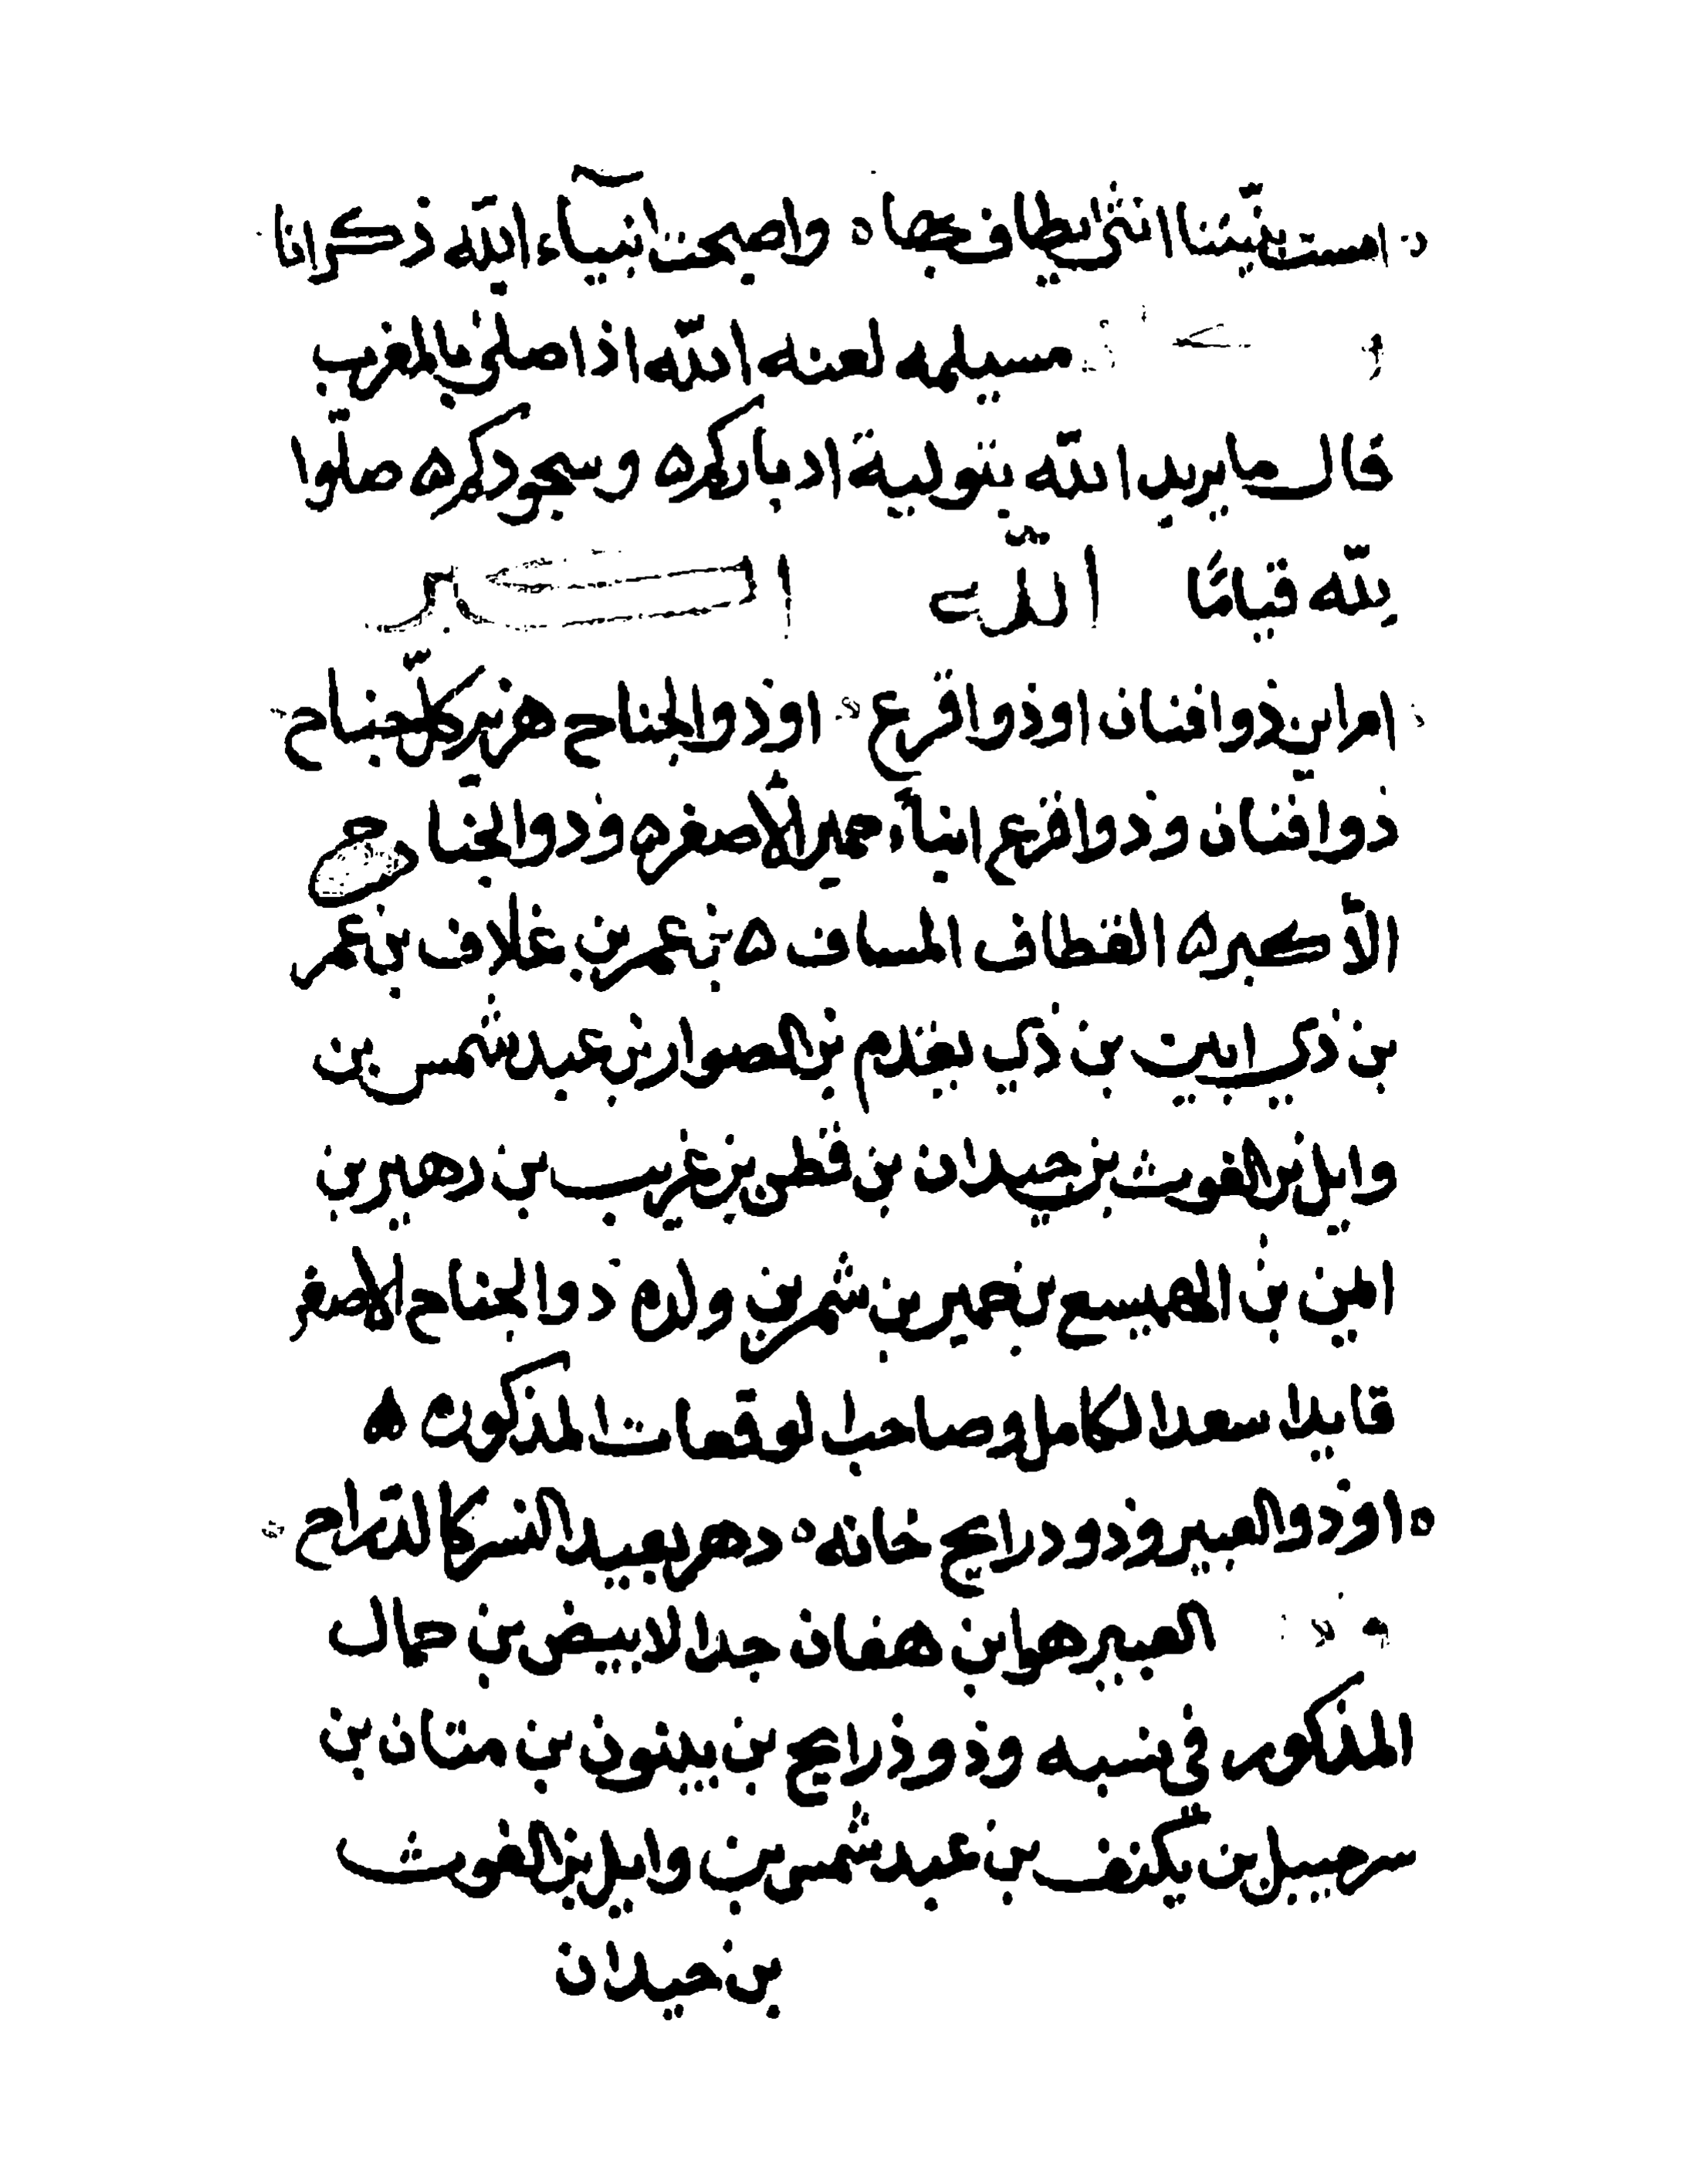 امست نبيّتنا انثى يطاف بها ه واصبحت انبيآء الله ذكرانا
مسيلمه لعنه الله اذا صلى بالمغرب
قال ما يريد الله بتولية ادباركم ه وسجودكم ه صلّوا
لله قيامًا اللّه اكبر
ام اين ذو افنان او ذو اقرع او ذو الجناح هزبر كلّ جناح
ذو افنان وذو اقرع ابنآء حمير الأصغر ه وذو الجناح
الأكبر ه القطاف المساف ه بن عمر بن غلاف بن عمر
بن ذي ابين بن ذي يقدم بن الصوار بن عبد شمس بن
وايل بن الغوث بن حيدان بن قطن بن غريب بن زهير بن
ايمن بن الهميسع بن حمير بن شمر بن ولده ذو الجناح الاصغر
قايد اسعد الكامل وصاحب الوقعات المذكوره ه
ه او ذو العبير وذو ذرايح خانه ه دهر يعيد النسر كالتراح
العبير هو ابن هفان جد الابيض بن حمال
المذكور في نسبه وذو ذرايح بن ينون بن متان بن
سرحبيل بن يكنف بن عبد شمس بن وايل بن الغوث
بن حيدان